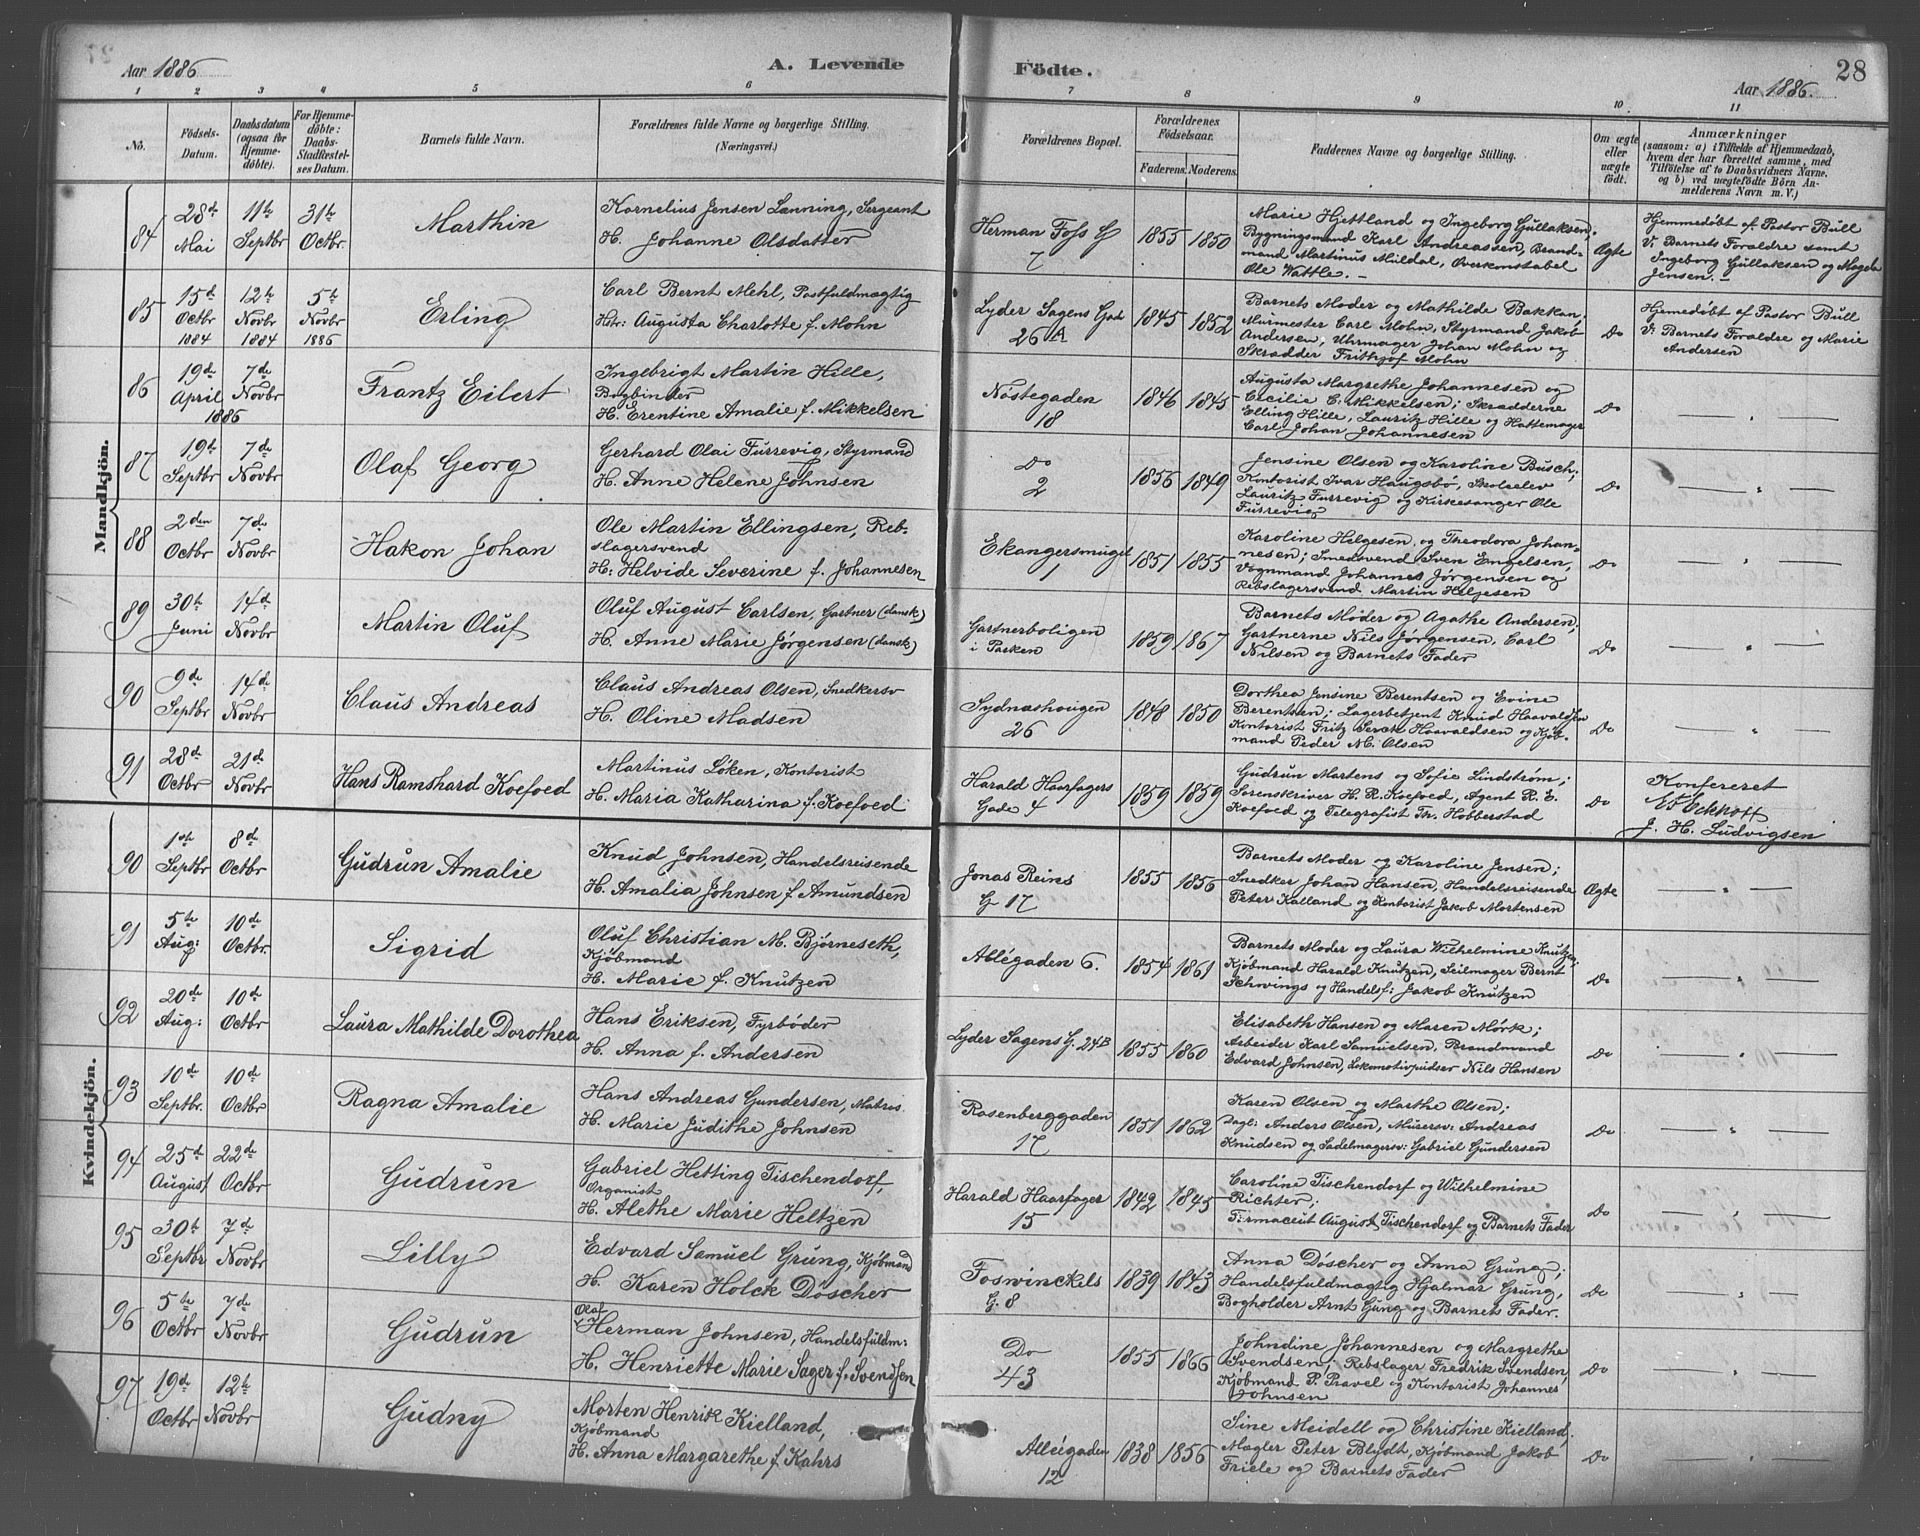 Aar 1886 A. Levende Födte. Aar 1886. 28
1 2 3 4 5 6 7 8 9 10 11
No.
Födsels-Datum.
Daabsdatum (ogsaa for Hjemmedöbte).
For Hjemmedöbte: Daabs-Stadfestelses Datum.
Barnets fulde Navn.
Forældrenes fulde Navne og borgerlige Stilling. (Næringsvei.)
Forældrenes Bopæl.
Forældrenes Födselsaar.
Faderens. Moderens.
Faddernes Navne og borgerlige Stilling.
Om ægte eller uægte födt.
Anmærkninger
(saasom: a) i Tilfelde af Hjemmedaab,
hvem der har forrettet samme, med
Tilföielse af to Daabsvidners Navne.
og b) ved uægtefödte Börn An-
melderens Navn m. V.)
Mandkjön.
84 28de Mai 11te Septbr 31te Octbr. Marthin
Kornelius Jensen Lænning, Sergeant
H. Johanne Olsdatter
Herman Foss G 7 1855 1850
Marie Hjettland og Ingeborg Gullaksen,
Bygningsmand Karl Andreassen, Brand-
mand Martinus Muldal, Overkonstabel
Ole Wattle. –
Ægte
Hjemmedøbt af Pastor Bull
V: Barnets Forældre samt
Ingeborg Gullaksen og Magda
Jensen. –
85 15de Octbr 1884 12te Novbr 1884 5te Novbr 1886 Erling
Carl Bernt Mehl, Postfuldmægtig
Hstr: Augusta Charlotte f. Mohn
Lyder Sagens Gade 26 A 1845 1852
Barnets Moder og Mathilde Bakkan,
Murmester Carl Mohn, Styrmand Jakob
Andersen, Uhrmager Johan Mohn og
Skrædder Frithjof Mohn
Do
Hjemedøbt af Pastor Bull
V: Barnets Forældre og Marie
Andersen
86 19de April 1886 7de Novbr Frantz Eilert
Ingebrigt Martin Hille,
Bogbinder
H. Erentine Amalie f. Mikkelsen
Nøstegaden 18 1846 1845
Augusta Margrethe Johannesen og
Cecilie C. Mikkelsen; Skrædderne
Elling Hille, Lauritz Hille og Hattemager
Carl Johan Johannesen
Do — " —
87 19de Septbr 7de Novbr Olaf Georg
Gerhard Olai Furrevig, Styrmand
H. Anne Helene Johnsen
Do 2 1856 1849
Jensine Olsen og Karoline Busch;
Kontorist Ivar Haugsbø, Skoleelev
Lauritz Furrevig og Kirkesanger Ole
Furrevig
Do — " —
88 2den Octbr 7de Novbr Hakon Johan
Ole Martin Ellingsen, Reb-
slagersvend
H: Helvide Severine f. Johannesen
Ekangersmuget 1 1851 1855
Karoline Helgesen og Theodora Johan-
nesen; Smedsvend Sven Engelsen,
Vognmand Johannes Jørgensen og
Rebslagersvend Martin Helgesen
Do — " —
89 30te Juni 14de Novbr Martin Oluf
Oluf August Carlsen, Gartner (dansk)
H. Anne Marie Jørgensen (dansk)
Gartnerboligen i Parken 1859 1867
Barnets Moder og Agathe Andersen;
Gartnerne Nils Jørgensen, Carl
Nilsen og Barnets Fader
Do — " —
90 9de Septbr 14de Novbr Claus Andreas
Claus Andreas Olsen, Snedkersv
H. Oline Madsen
Sydneshougen 26 1848 1850
Dorthea Jensine Berentsen og Evine
Berentsen; Lagerbetjent Knud Haavaldsen
Kontorist Fritz Serck Haavaldsen og Kjøb-
mand Peder M. Olsen
Do — " —
91 28de Octbr 21de Novbr Hans Ramshard Koefoed
Martinus Løken, Kontorist
H. Maria Katharina f. Koefoed
Harald Haarfagers Gade 4 1859 1859
Gudrun Martens og Sofie Lindstrøm;
Sorenskriver H. R. Koefoed, Agent R. E.
Koefoed og Telegrafist Th. Hobberstad
Do
Konfereret
J. H. Ludvigsen
Kvindekjön.
90 1ste Septbr 8de Octbr Gudrun Amalie
Knud Johnsen, Handelsreisende
H. Amalia Johnsen f. Amundsen
Jonas Reins G 17 1855 1856
Barnets Moder og Karoline Jensen;
Snedker Johan Hansen, Handelsreisende
Peter Kalland og Kontorist Jakob Mortensen
Ægte — " —
91 5te Aug: 10de Octbr. Sigrid
Oluf Christian M. Bjørneseth,
Kjøbmand
H. Marie f. Knutzen
Allégaden 6. 1854 1861
Barnets Moder og Laura Wilhelmine Knutzen;
Kjøbmand Harald Knutzen, Seilmager Bernt
Schwings og Handelsf: Jakob Knutzen
Do — " —
92 20de Aug: 10de Octbr Laura Mathilde Dorothea
Hans Eriksen, Fyrbøder
H. Anna f. Andersen
Lyder Sagens G. 24B 1855 1860
Elisabeth Hansen og Maren Mørk;
Arbeider Karl Samuelsen, Brandmand
Edvard Johnsen, Lokomotivpudser Nils Hansen
Do — " —
93 10de Septbr. 10de Octbr Ragna Amalie
Hans Andreas Gundersen, Matros
H. Marie Judithe Johnsen
Rosenberggaden 17 1851 1862
Karen Olsen og Marthe Olsen;
Dagl: Anders Olsen, Murersv: Andreas
Knudsen og Sadelmagersv: Gabriel Gundersen
Do — " —
94 25de August 22de Octbr Gudrun
Gabriel Hetting Tischendorf,
Organist
H. Alethe Marie Heltzen
Harald Haarfager 15 1842 1845
Caroline Tischendorf og Wilhelmine
Richter;
Firmaceut August Tischendorf og Barnets Fader
Do — " —
95 30t Septbr 7de Novbr Lilly
Edvard Samuel Grung, Kjøbmand
H. Karen Holck Døscher
Foswinckels G. 8 1839 1843
Anna Døscher og Anna Grung;
Handelsfuldmægtig Hjalmar Grung,
Bogholder Arnt Gung og Barnets Fader.
Do — " —
96 5te Octbr 7de Novbr Gudrun
Olaf
Herman Johnsen, Handelsfuldm:
H. Henriette Marie Sager f. Svendsen
Do 43 1855 1866
Johndine Johannesen og Margrethe
Svendsen; Rebslager Fredrik Svendsen,
Kjøbmand P. Pravel og Kontorist Johannes
Johnsen
Do — " —
97 19de Octbr 12te Novbr Gudny
Morten Henrik Kielland,
Kjøbmand
H. Anna Margarethe f. Kahrs
Alléigaden 12 1838 1856
Sine Meidell og Christine Kielland;
Mægler Peter Blydt, Kjøbmand Jakob
Friele og Barnets Fader
Do — " —